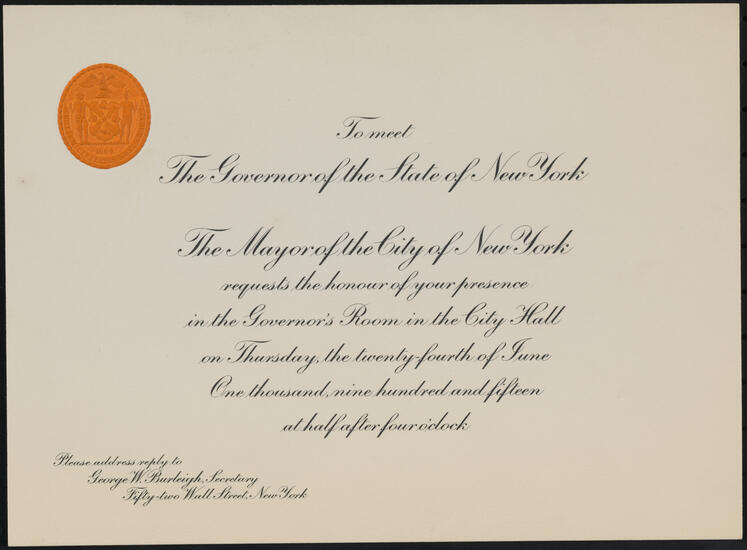 To meet
The Governor of the State of New York
The Mayor of the City of New York
requests the honour of your presence
in the Governor's Room in the City Hall
on Thursday, the twenty-fourth of June
One thousand, nine hundred and fifteen
at half after four o'clock
Please address reply to
George W. Burleigh, Secretary
Fifty-two Wall Street, New York